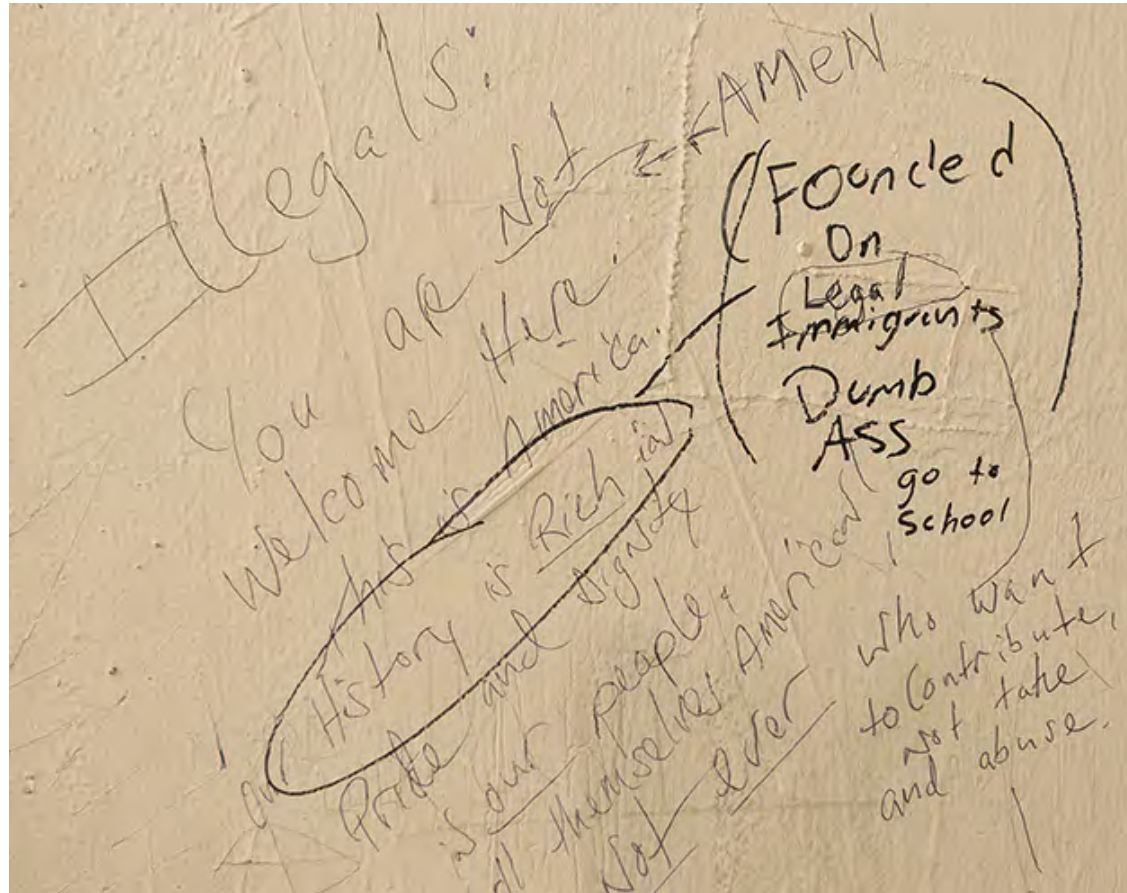 ILegals:
You are Not
Welcome Here.
this is America.
our History is Rich in
Pride and Dignity
is our people &
themselves American
Not ever
<AMEN
(Founded
On
Legal
Immigrants
Dumb
ASS
go to
school)
who want
to contribute,
not take
and abuse.